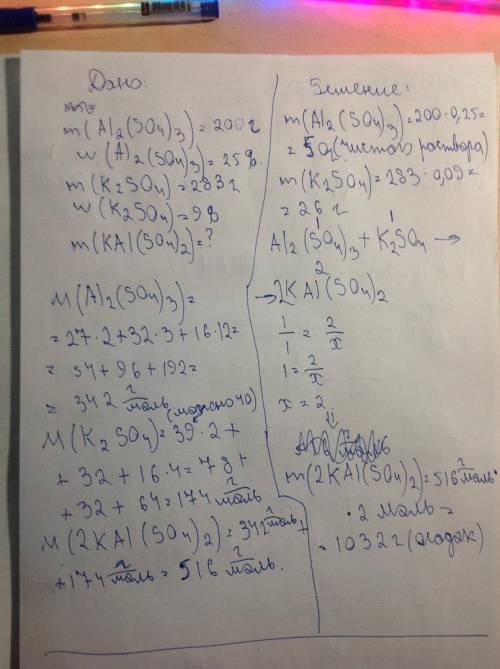 Дано:
m(Al2(SO4)3)=200г
w(Al2(SO4)3)=25%
m(K2SO4)=283г
w(K2SO4)=9%
m(KAl(SO4)2)=?
M(Al2(SO4)3)=
=27·2+32·3+16·12=
= 54+96+192=
= 342 г/моль (можно 40)
M(K2SO4)=39·2+
+32+16·4=78+
+32+64=174 г/моль
M(2KAl(SO4)2)=342 г/моль+
+174 г/моль=516 г/моль.
Решение:
m(Al2(SO4)3)=200·0,25=
= 50г (чистого раствора)
m(K2SO4)=283·0,09=
=26 г
1 1
Al2(SO4)3+K2SO4→
2
→2KAl(SO4)2
1/1=2/x
1=2/x
x=2
m(2KAl(SO4)2)=516 г/моль·
·2 моль=
=1032г (осадок)